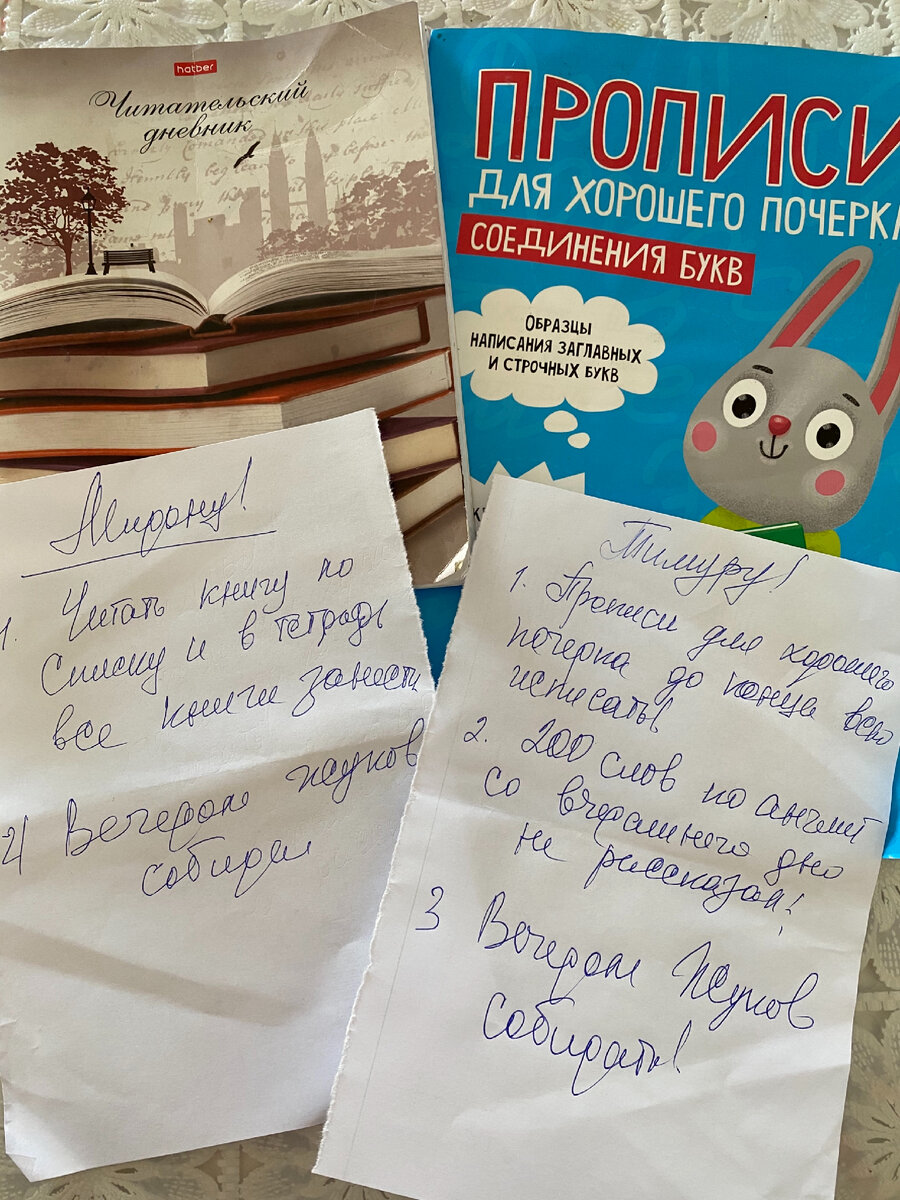 hatber
Читательский
дневник
ПРОПИСИ
ДЛЯ ХОРОШЕГО ПОЧЕРКА
СОЕДИНЕНИЯ БУКВ
ОБРАЗЦЫ
НАПИСАНИЯ ЗАГЛАВНЫХ
И СТРОЧНЫХ БУКВ
Мирону!
1. Читать книгу по
списку и в тетрадь
все книги занести
2) Вечером жуков
собирали
Тимуру!
1. Прописи для хорошего
почерка до конца всю
исписать!
2. 200 слов по англит
со вчерашнего дню
не рассказал!
3 Вечером Жуков
собирать!